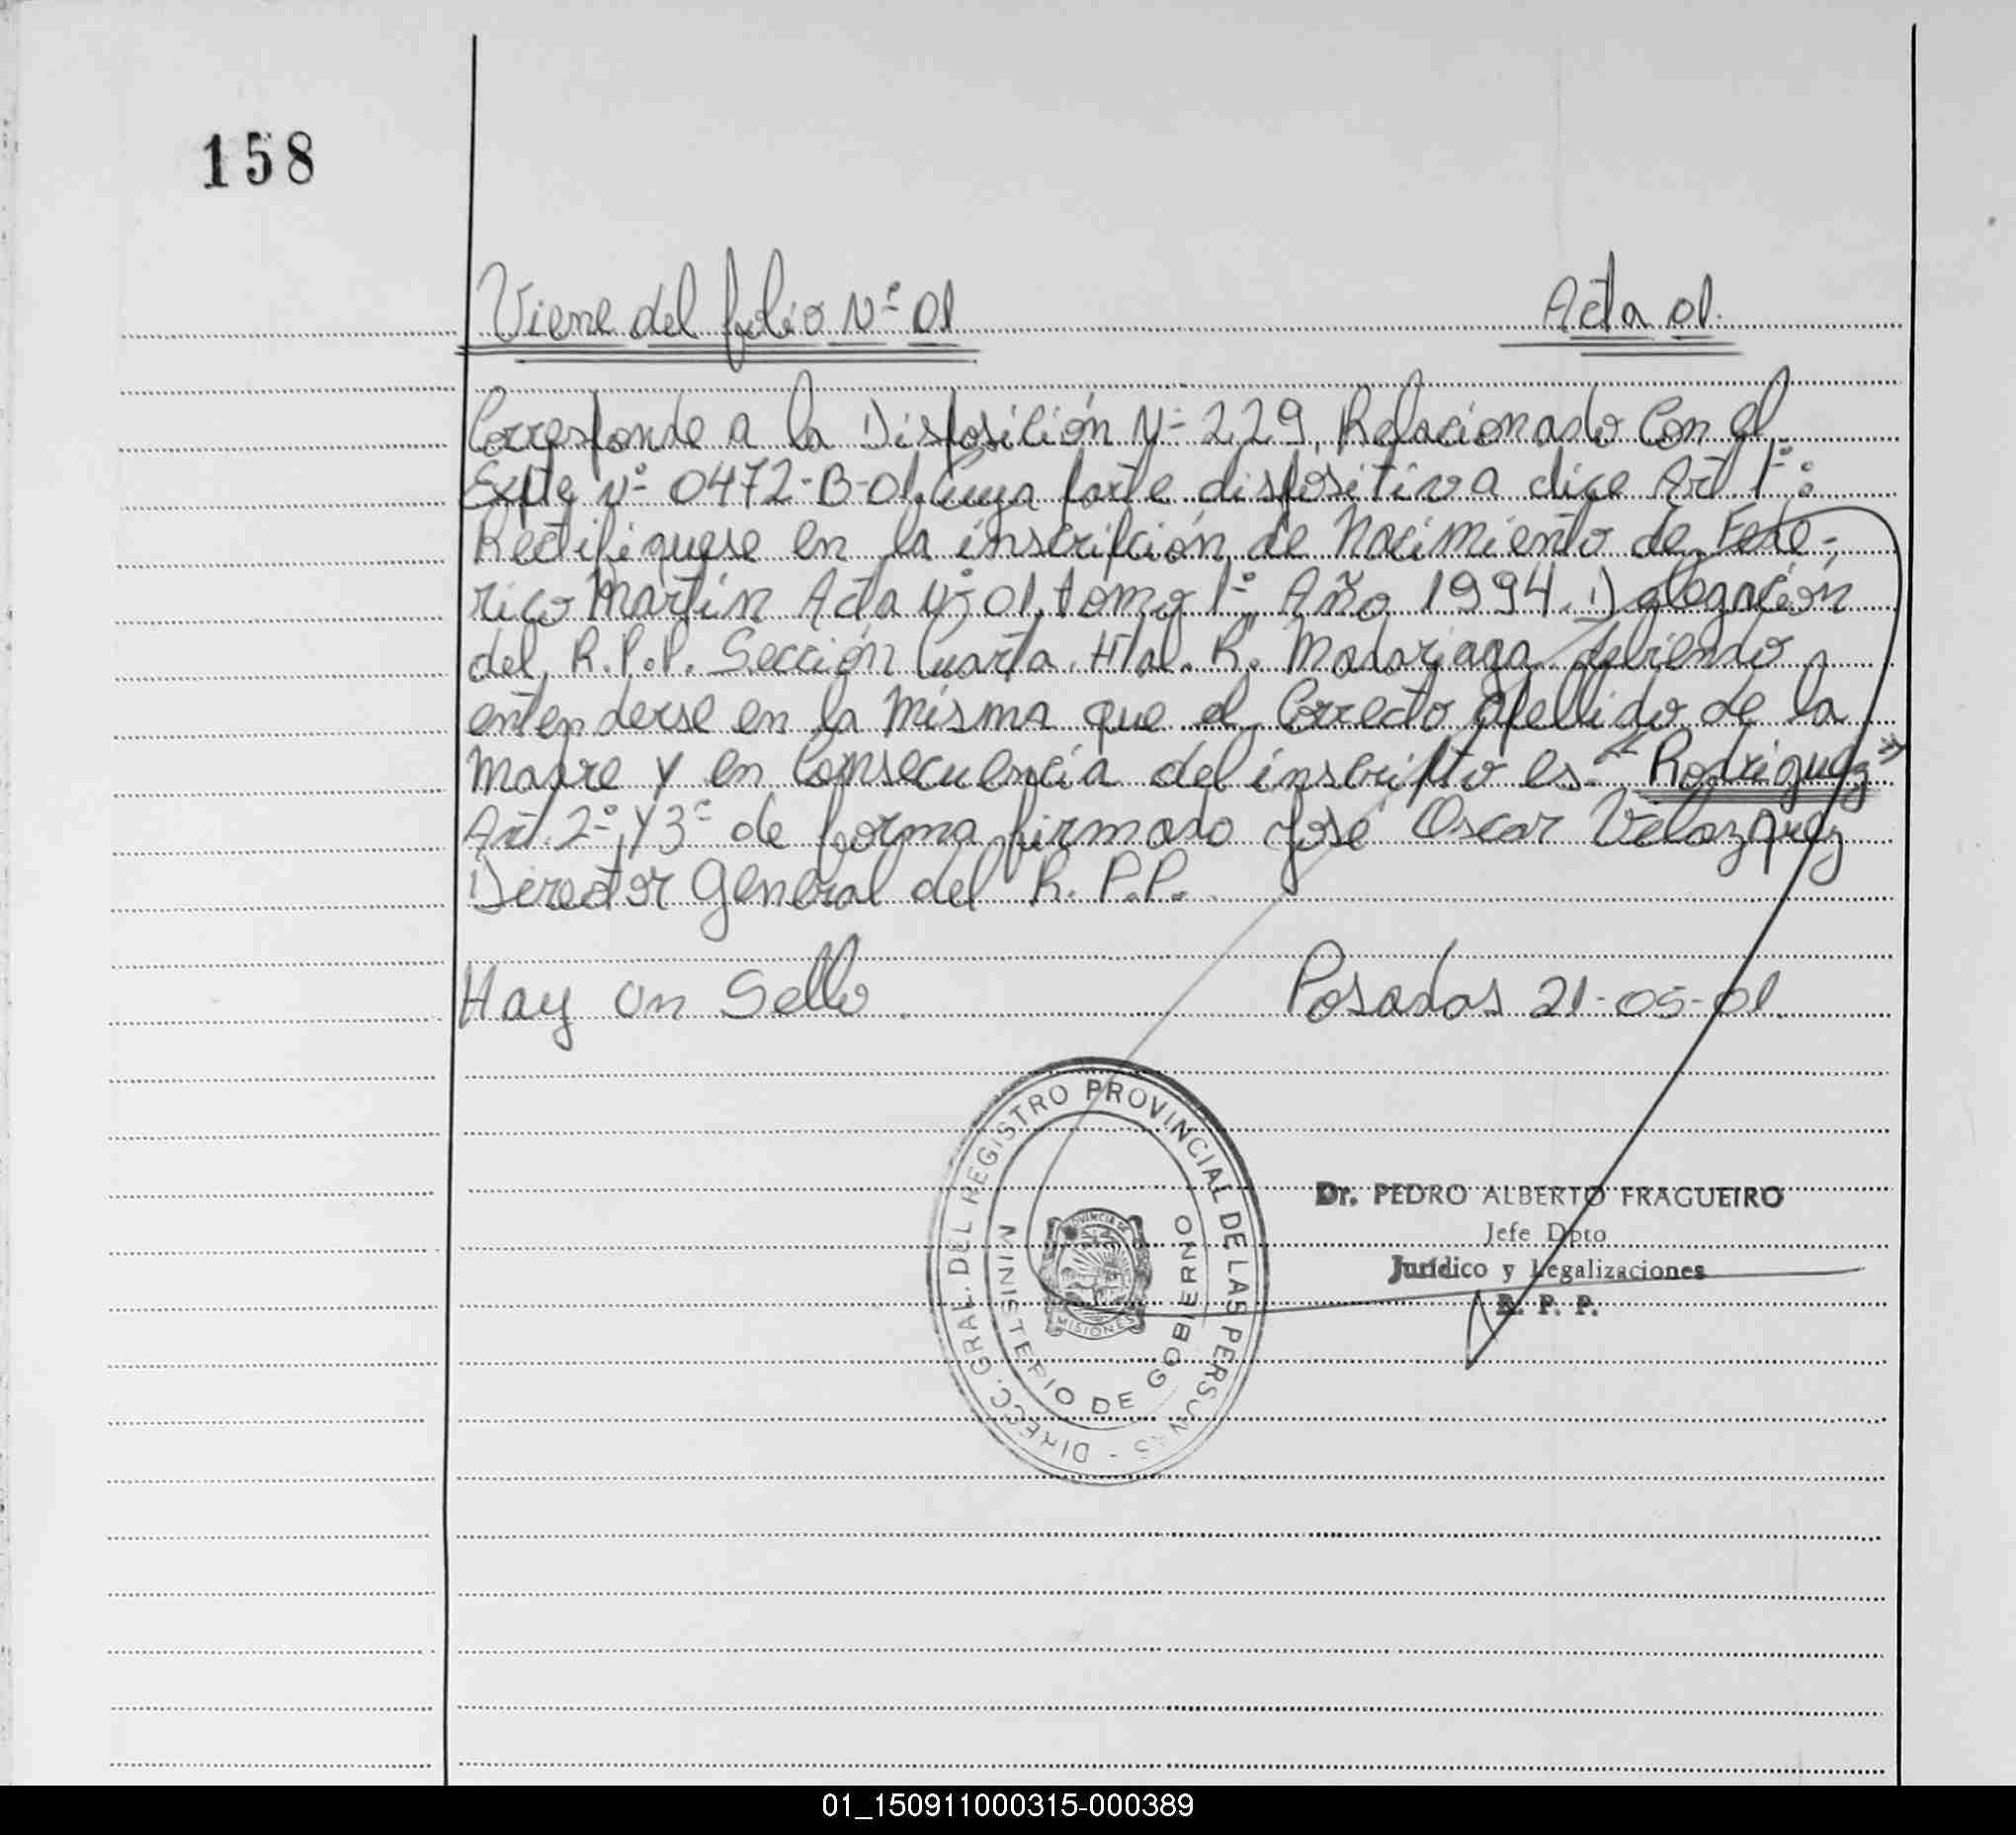 158
Viene del folio Nº 01
Acta 01.
Corresponde a la Disposición Nº 229, Relacionado Con el
Expte Nº 0472-B-01, Cuya parte dispositiva dice Art 1º:
Rectifiquese en la inscripción de Nacimiento de Fede-
rico Martín Acta Nº 01, tomo 1º, Año 1994. Delegación
del R.P.P. Sección Cuarta. Htal. R. Madariaga debiendo
entenderse en la misma que el Correcto apellido de la
Madre y en Consecuencia del inscripto es. "Rodriguez"
Art. 2º y 3º de forma firmado José Oscar Velazquez
Director General del R. P.P.
Hay un Sello.
Posadas 21-05-01.
DIRECC. GRAL. DEL REGISTRO PROVINCIAL DE LAS PERSONAS -
MINISTERIO DE GOBIERNO
PROVINCIA DE
MISIONES
Dr. PEDRO ALBERTO FRAGUEIRO
Jefe Dpto
Jurídico y Legalizaciones
R. P. P.
01_150911000315-000389